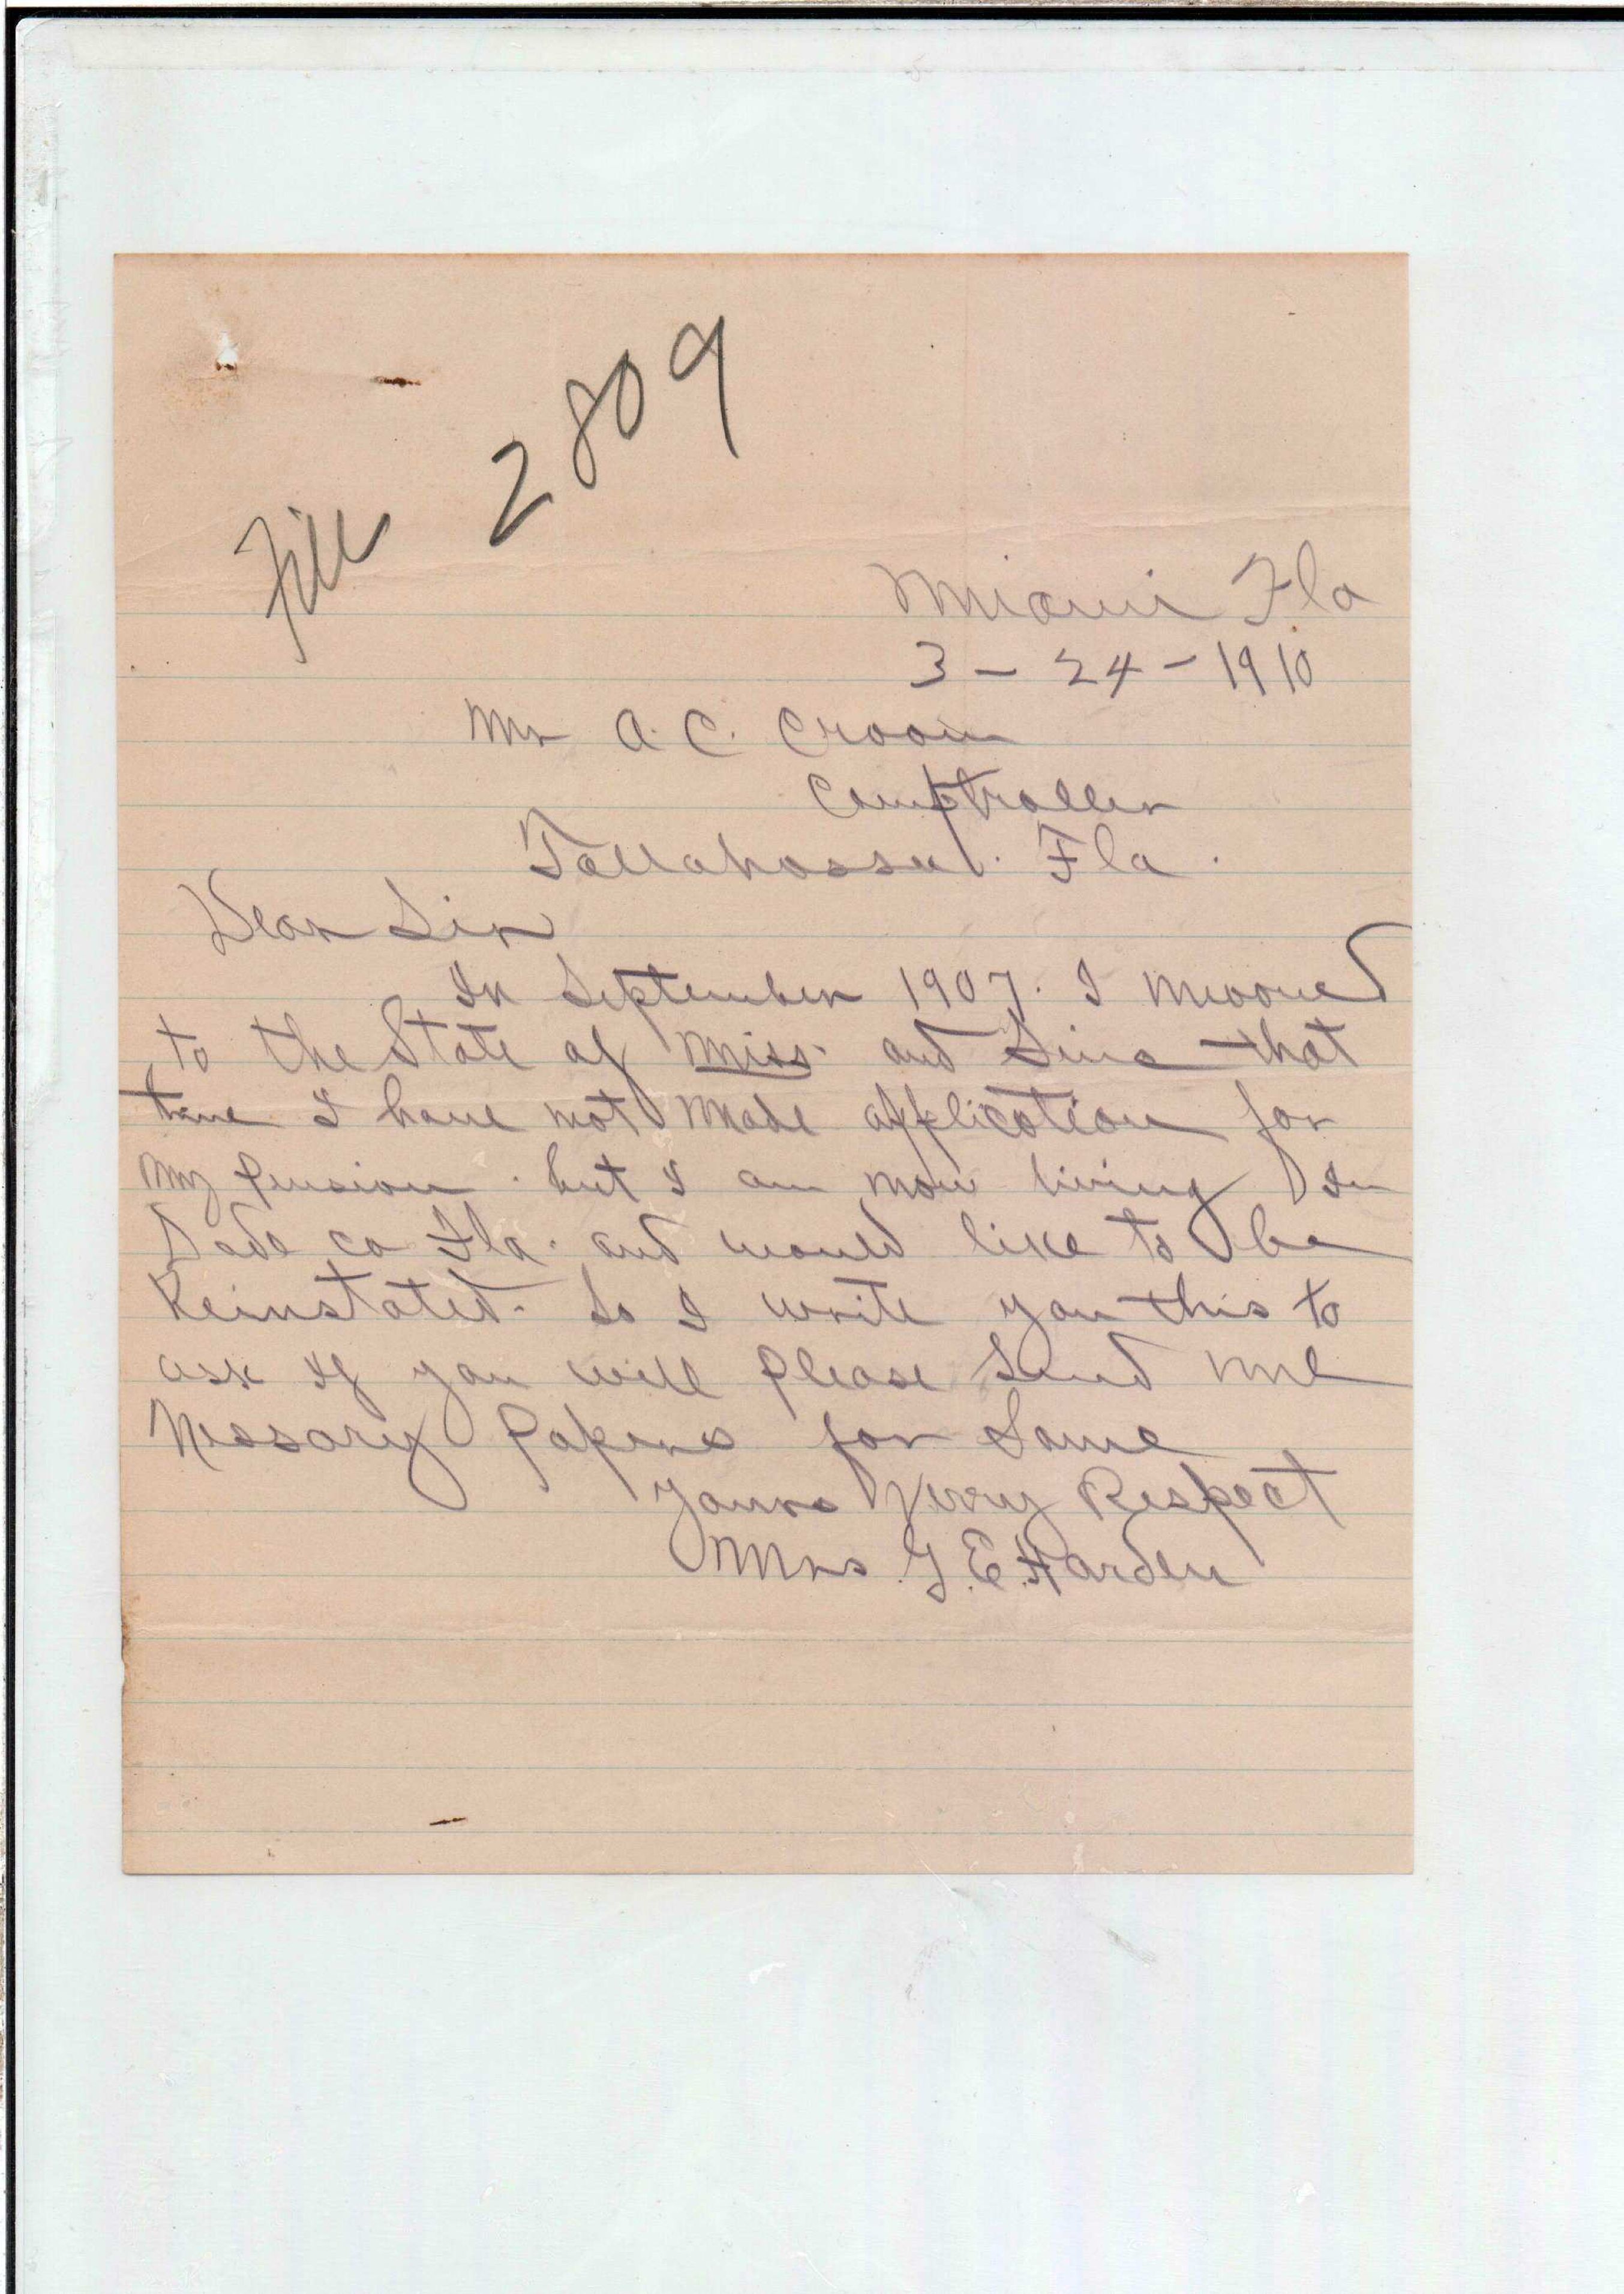 File 2809
Miami Fla
3 - 24 - 1910
Mr A. C. Croom
Comptroller
Tallahassee. Fla.
Dear Sir
In September 1907. I mooved
to the State of Miss. and Since that
time I have not made application for
my pension. but I am now living In
Dade co Fla. and would like to be
Reinstated. So I write you this to
ask If you will please Send me
Nessary Papers for Same
yours Very Respect
Mrs. G. E. Harden